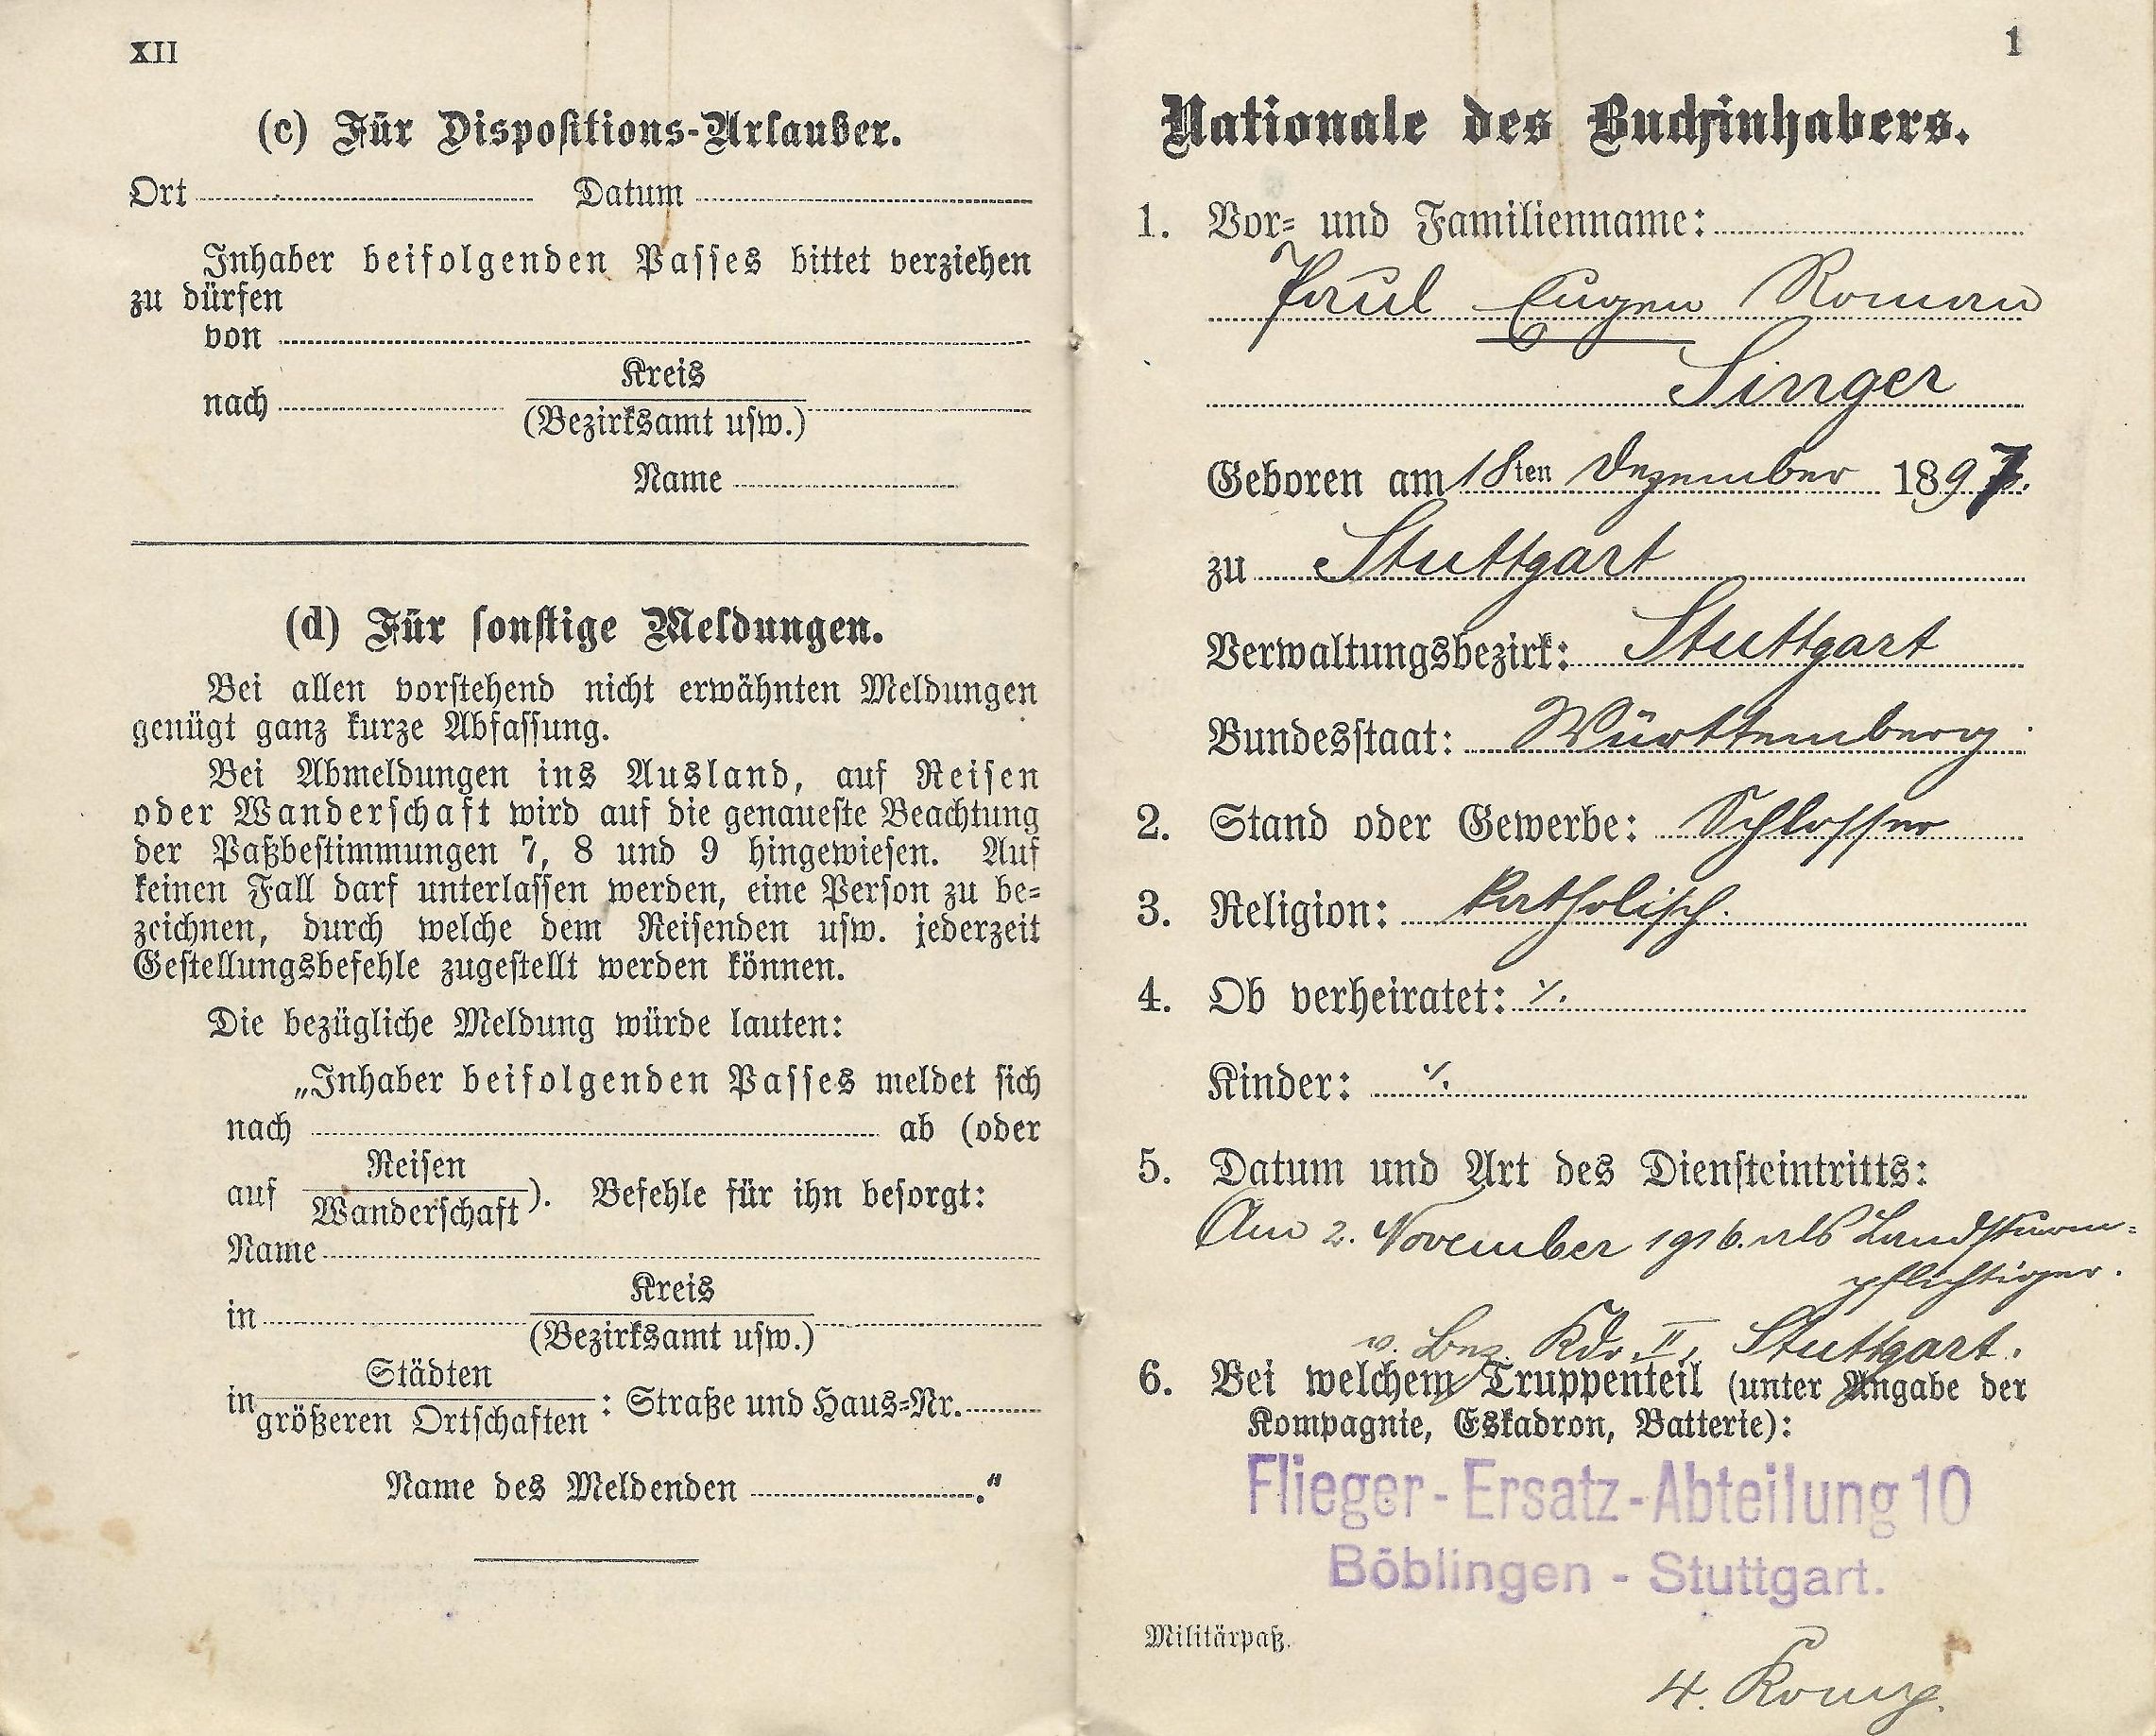 XII
(c) Für Dispositions-Urlauber.
Ort Datum
Inhaber beifolgenden Passes bittet verziehen
zu dürfen
von
nach Kreis
(Bezirksamt usw.)
Name
(d) Für sonstige Meldungen.
Bei allen vorstehend nicht erwähnten Meldungen
genügt ganz kurze Abfassung.
Bei Abmeldungen ins Ausland, auf Reisen
oder Wanderschaft wird auf die genaueste Beachtung
der Paßbestimmungen 7, 8 und 9 hingewiesen. Auf
keinen Fall darf unterlassen werden, eine Person zu be-
zeichnen, durch welche dem Reisenden usw. jederzeit
Gestellungsbefehle zugestellt werden können.
Die bezügliche Meldung würde lauten:
„Inhaber beifolgenden Passes meldet sich
nach ab (oder
auf Reisen
Wanderschaft). Befehle für ihn besorgt:
Name
in Kreis
(Bezirksamt usw.)
in Städten
größeren Ortschaften : Straße und Haus-Nr.
Name des Meldenden ."
1
Nationale des Buchinhabers.
1. Vor- und Familienname:
Paul Eugen Roman
Singer
Geboren am 18ten Dezember 1897.
zu Stuttgart
Verwaltungsbezirk: Stuttgart
Bundesstaat: Württemberg
2. Stand oder Gewerbe: Schlosser
3. Religion: katholisch.
4. Ob verheiratet: ⁒
Kinder: ⁒
5. Datum und Art des Diensteintritts:
Am 2. November 1916. als Landsturm-
pflichtiger.
v. Bez. Kdo. II, Stuttgart.
6. Bei welchem Truppenteil (unter Angabe der
Kompagnie, Eskadron, Batterie):
Flieger-Ersatz-Abteilung 10
Böblingen - Stuttgart.
Militärpaß.
4. Komp.